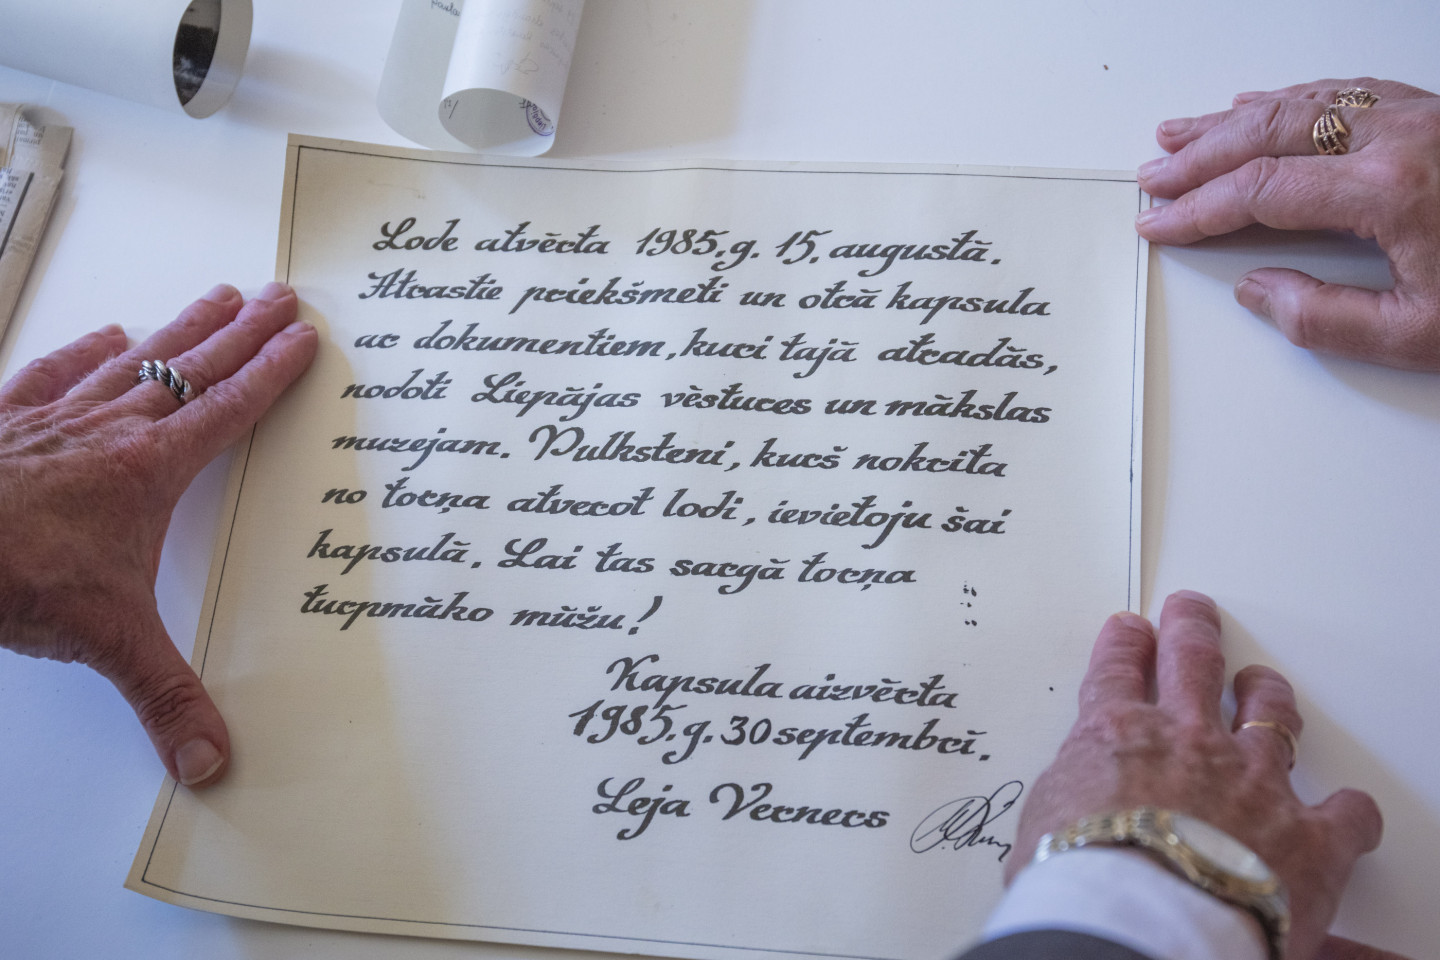 Lode atvērta 1985.g. 15. augustā.
Atrastie priekšmeti un otrā kapsula
ar dokumentiem, kuri tajā atradās,
nodoti Liepājas vēstures un mākslas
muzejam. Pulksteni, kurš nokrita
no torņa atverot lodi, ievietoju šai
kapsulā. Lai tas sargā torņa
turpmāko mūžu!
Kapsula aizvērta
1985.g. 30 septembrī.
Leja Verners